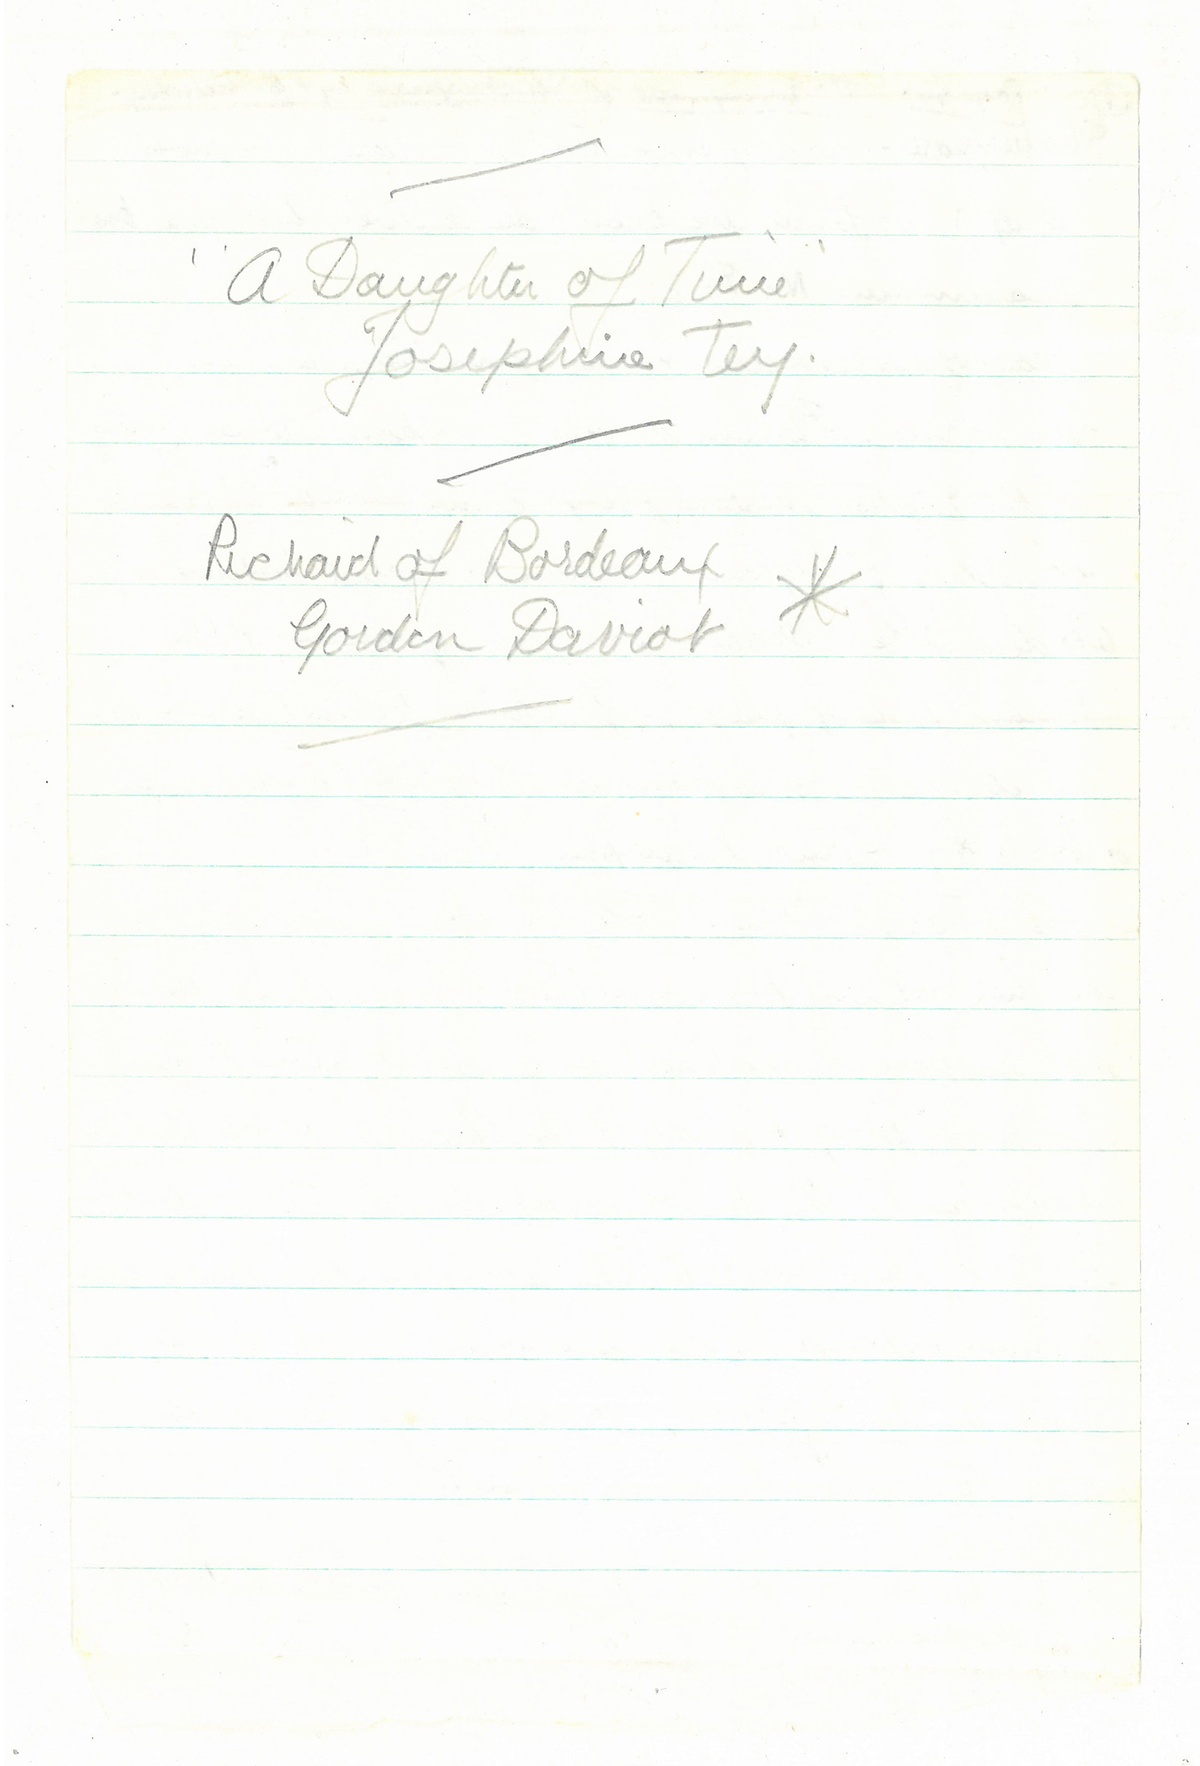 "A Daughter of Time"
Josephine Tey.
Richard of Bordeaux
Gordon Daviot *